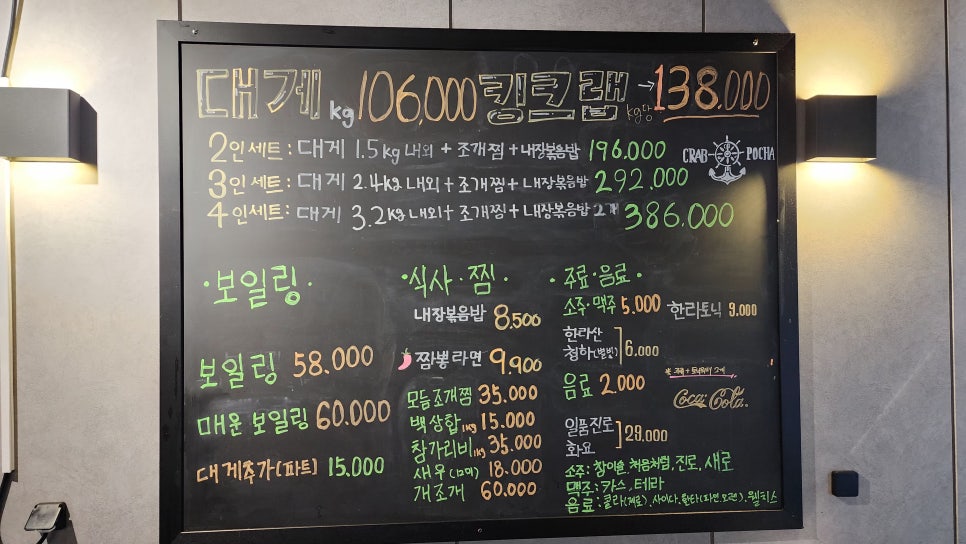 대게 kg 106,000 킹크랩 → kg당 138.000
2인세트: 대게 1.5kg내외 + 조개찜 + 내장볶음밥 196.000
3인세트: 대게 2.4kg내외 + 조개찜 + 내장볶음밥 292.000
4인세트: 대게 3.2kg내외 + 조개찜 + 내장볶음밥 2개 386.000
CRAB POCHA
·보일링·
보일링 58.000
매운 보일링 60.000
대게추가(파트) 15.000
·식사·찜·
내장볶음밥 8.500
짬뽕라면 9.900
모듬조개찜 35.000
백상합 1kg 15.000
참가리비 1kg 35.000
새우 18.000
개조개 60.000
·주류·음료·
소주·맥주 5.000
한라토닉 9.000
한라산
청하(별빛) 6.000
음료 2.000
Coca-Cola.
일품진로
화요 29.000
소주: 참이슬, 처음처럼, 진로, 새로
맥주: 카스, 테라
음료: 콜라(제로), 사이다, 환타(파인,오렌), 웰치스